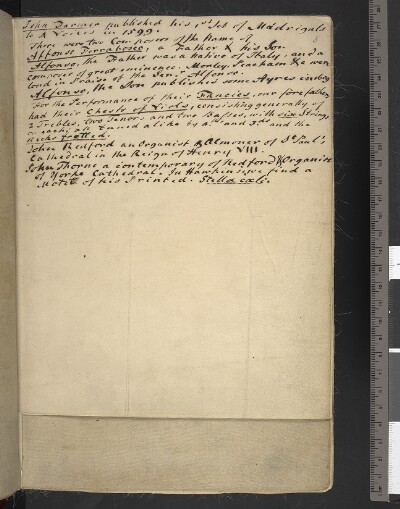 John Farmer published his 1st Set of Madrigals
to 4 Voices in 1599.
There were two Composers of the Name of
Alfonso Ferrabosco, a Father & his Son
Alfonso, the Father was a native of Italy, and a
composer of great eminence. Morley Peacham &c were
loud in Praise of the Senr Alfonso.
Alfonso, the Son published some Ayres in 1609
For the Performance of their Fancies, our forefathers
had their Chests of Viols, consisting generally of
2 Trebles, two Tenors and two Basses, with six Strings
to each; all tuned alike by 4ths and 3ds and the
necks fretted.
John Redford an Organist & Almoner of St Paul's
Cathedral in the Reign of Henry VIII.
John Thorne a contemporary of Redford & Organist
of Yorke Cathedral. In Hawkins we find a
Motett of his Printed. Stella cæli.